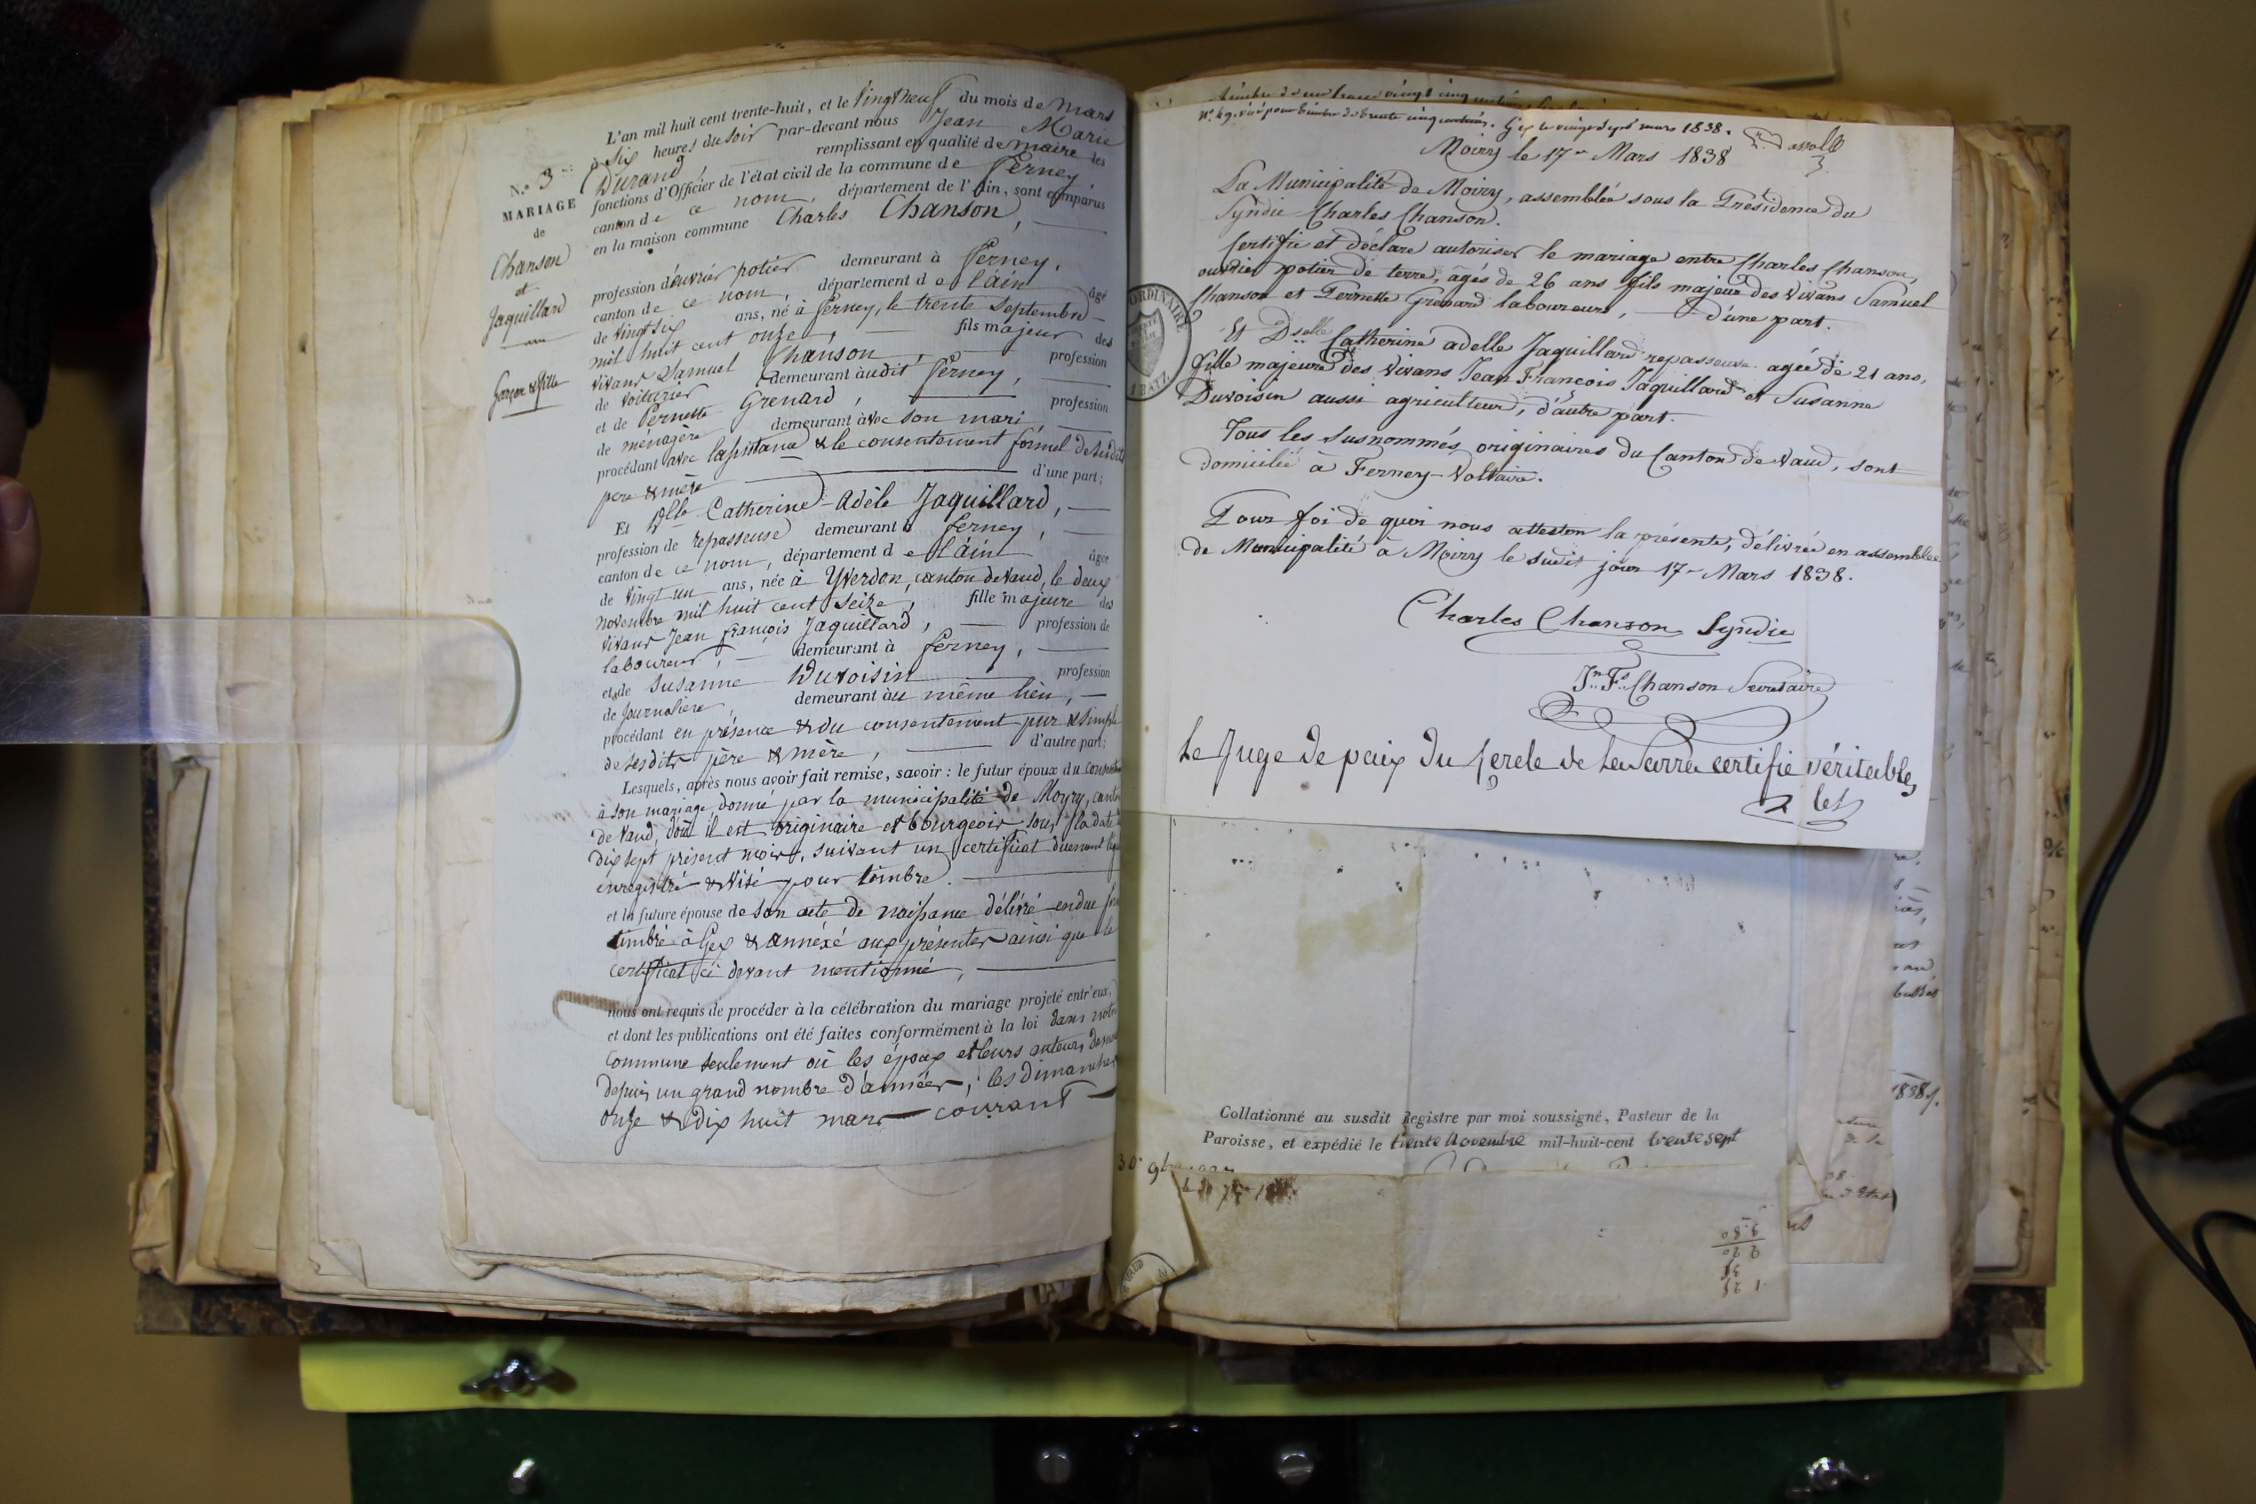 L'an mil huit cent trente-huit, et le vingt neuf du mois de Mars
à six heures du soir par-devant nous Jean Marie
Durand remplissant en qualité de maire les
fonctions d'Officier de l'état civil de la commune de Ferney
canton de ce nom, département de l'Ain, sont comparus
en la maison commune Charles Chanson,
N.° 3
MARIAGE
de
Chanson
et
Jaquillard
Garçon & fille
profession d'ouvrier potier demeurant à Ferney,
canton de ce nom, département de l'ain âgé
de vingt six ans, né à Ferney, le trente Septembre
mil huit cent onze, fils majeur des
vivans Samuel Chanson, profession
de voiturier demeurant audit Ferney,
et de Pernette Grenard, profession
de ménagère demeurant avec son mari,
procédant avec l'assistance & le consentement formel de sesdits
père & mère d'une part;
Et Dlle Catherine-Adèle Jaquillard,
profession de repasseuse demeurant à Ferney,
canton de ce nom, département de l'ain âgée
de vingt un ans, née à Yverdon, canton de Vaud, le deux
novembre mil huit cent seize, fille majeure des
vivans Jean françois Jaquillard, profession de
laboureur, demeurant à Ferney,
et de Susanne Duvoisin profession
de Journalière, demeurant au même lieu,
procédant en présence & du consentement pur & simple
de sesdits père & mère, d'autre part;
Lesquels, après nous avoir fait remise, savoir : le futur époux du
à son mariage, donné par la municipalité de Moyry,
de Vaud, dont il est originaire et bourgeois sous la date
dix sept présent mois, suivant un certificat duement
enregistré & visé pour timbre.
et la future épouse de son acte de naissance délivré en due
timbré à Gex & annéxé aux présentes ainsi que le
certificat ci devant mentionné,
nous ont requis de procéder à la célébration du mariage projeté entr'eux,
et dont les publications ont été faites conformément à la loi dans notre
Commune seulement où les époux et leurs auteurs
depuis un grand nombre d'années, les dimanches
onze & dix huit mars courant
N.° 49. visé pour timbre de trente cinq centimes. Gex le vingt sept mars 1838.
Moiry le 17 Mars 1838
La Municipalité de Moiry, assemblée sous la Présidence du
Syndic Charles Chanson.
Certifie et déclare autoriser le mariage entre Charles Chanson,
ouvrier potier de terre, âgés de 26 ans fils majeur des vivans Samuel
Chanson et Pernette Grenard laboureurs, d'une part.
Et Dselle Catherine adelle Jaquillard repasseuse agée de 21 ans,
fille majeure des vivans Jean François Jaquillard et Susanne
Duvoisin aussi agriculteur, d'autre part.
Tous les susnommés originaires du Canton de Vaud, sont
domicilié à Ferney-Voltaire.
Pour foi de quoi nous atteston la présente, délivrée en assemblée
de Municipalité à Moiry le sudit jour 17 Mars 1838.
Charles Chanson Syndic
Jn. Fs. Chanson Secretaire
Le Juge de paix du Cercle de La Sarra certifie véritable,
Collationné au susdit Registre par moi soussigné, Pasteur de la
Paroisse, et expédié le trente Novembre mil-huit-cent trente sept